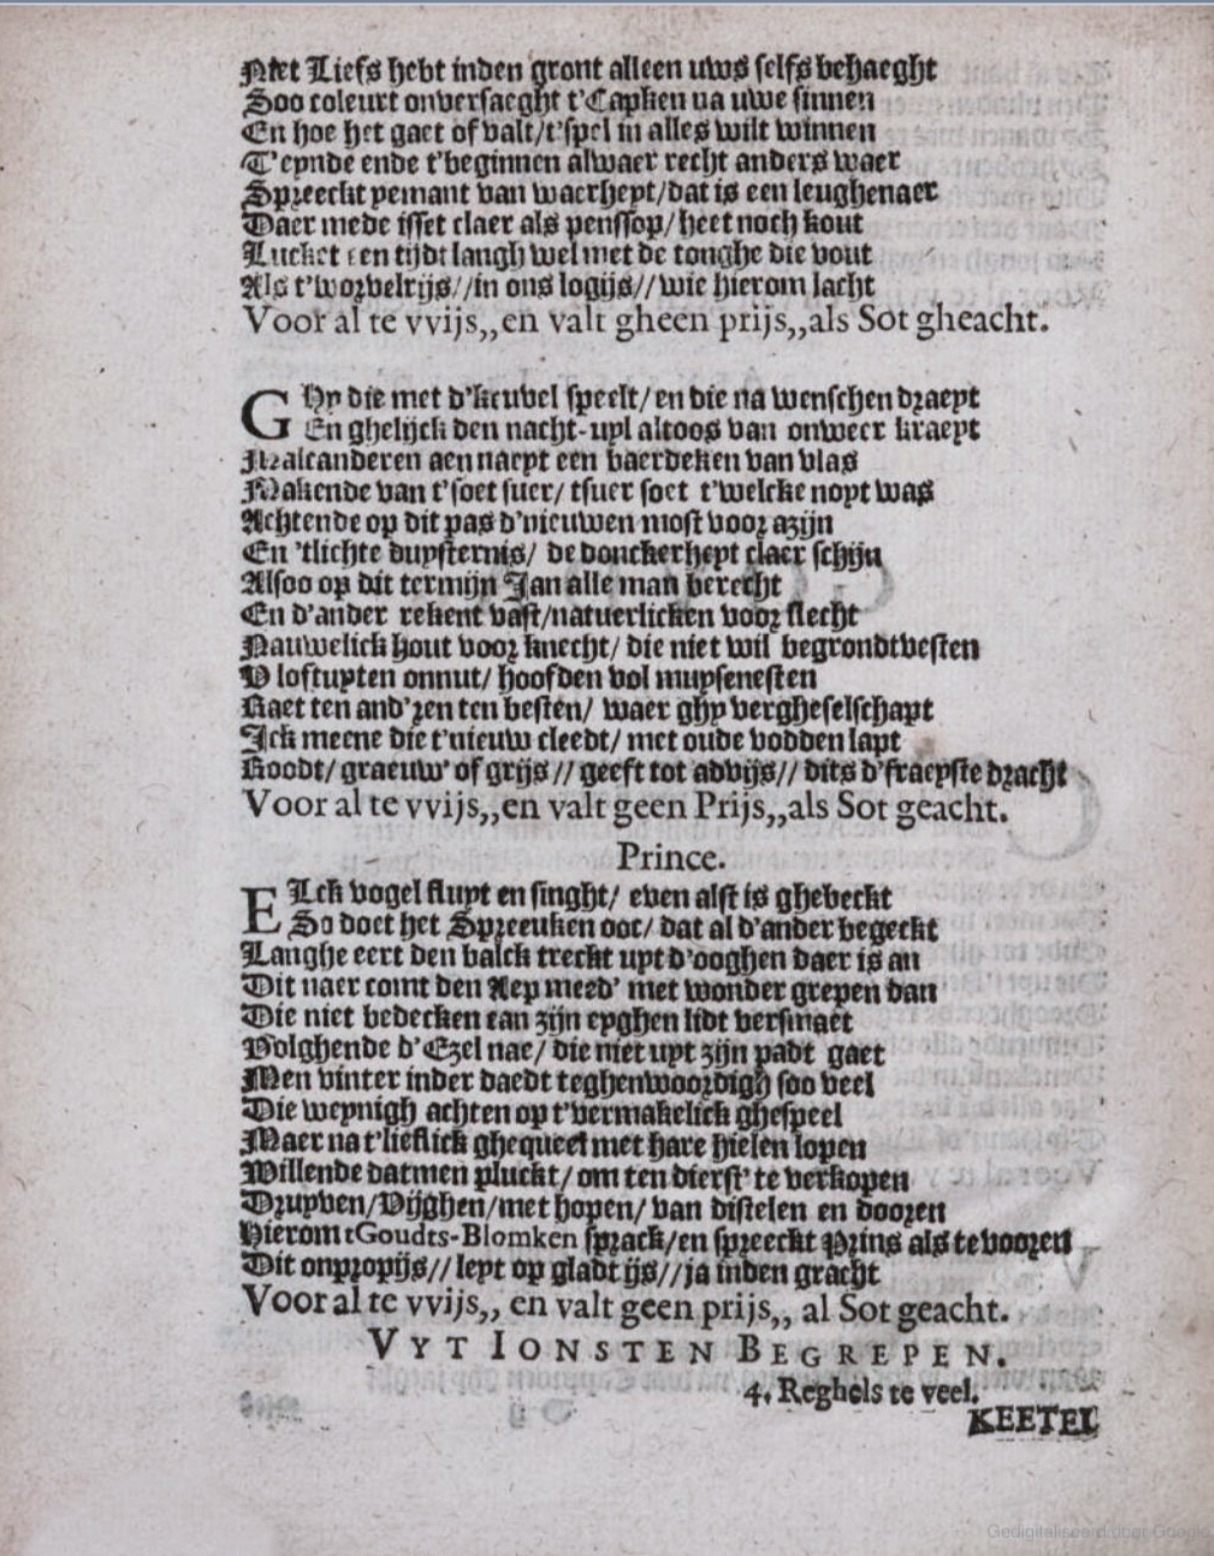 Niet Liefs hebt inden gront alleen uws selfs behaeght
Soo coleurt onversaeght t'Capken na uwe sinnen
En hoe het gaet of valt/t'spel in alles wilt winnen
T'eynde ende t'beginnen alwaer recht anders waer
Spreeckt yemant van waerheyt/dat is een leughenaer
Daer mede isset claer als penssop/heet noch kout
Lucket een tijdt langh wel met de tonghe die vout
Als t'worvelrijs//in ons logijs//wie hierom lacht
Voor al te vvijs,,en valt gheen prijs,,als Sot gheacht.
GHy die met d'keuvel speelt/en die na wenschen draeyt
En ghelijck den nacht-uyl altoos van onweer kraeyt
Malcanderen aennaeyt een baerdeken van vlas
Makende van t'soet suer/ tsuer soet t'welcke noyt was
Achtende op dit pas d'nieuwen most voor azijn
En 'tlichte duysternis/ de donckerheyt claer schijn
Alsoo op dit termijn Jan alle man berecht
En d'ander rekent vast/natuerlicken voor slecht
Nauwelick hout voor knecht/ die niet wil begrondtvesten
V loftuyten onnut/ hoofden vol muysenesten
Raet ten and'ren ten besten/ waer ghy vergheselschapt
Ick meene die t'nieuw cleedt/ met oude vodden lapt
Roodt/ graeuw' of grijs // geeft tot advijs// dits d'fraeyste dracht
Voor al te vvijs,,en valt geen Prijs,,als Sot geacht.
Prince.
ELck vogel fluyt en singht/ even alst is ghebeckt
So doet het Spreeuken ooc/ dat al d'ander begeckt
Langhe eert den balck treckt uyt d'ooghen daer is an
Dit naer comt den Aep meed' met wonder grepen dan
Die niet bedecken can zijn eyghen lidt versmaet
Volghende d'Ezel nae/ die niet uyt zijn padt gaet
Men vinter inder daedt teghenwoordigh soo veel
Die weynigh achten op t'vermakelick ghespeel
Maer na t'lieflick ghequeel met hare hielen lopen
Willende datmen pluckt/ om ten dierst' te verkopen
Druyven/Vijghen/met hopen/ van distelen en dooren
Hierom tGoudts-Blomken sprack/en spreeckt Prins als te vooren
Dit onpropijs// leyt op gladt ijs//ja inden gracht
Voor al te vvijs,, en valt geen prijs,, al Sot geacht.
VYT IONSTEN BEGREPEN.
4. Reghels te veel.
KEETEL
Gedigitaliseerd door Google